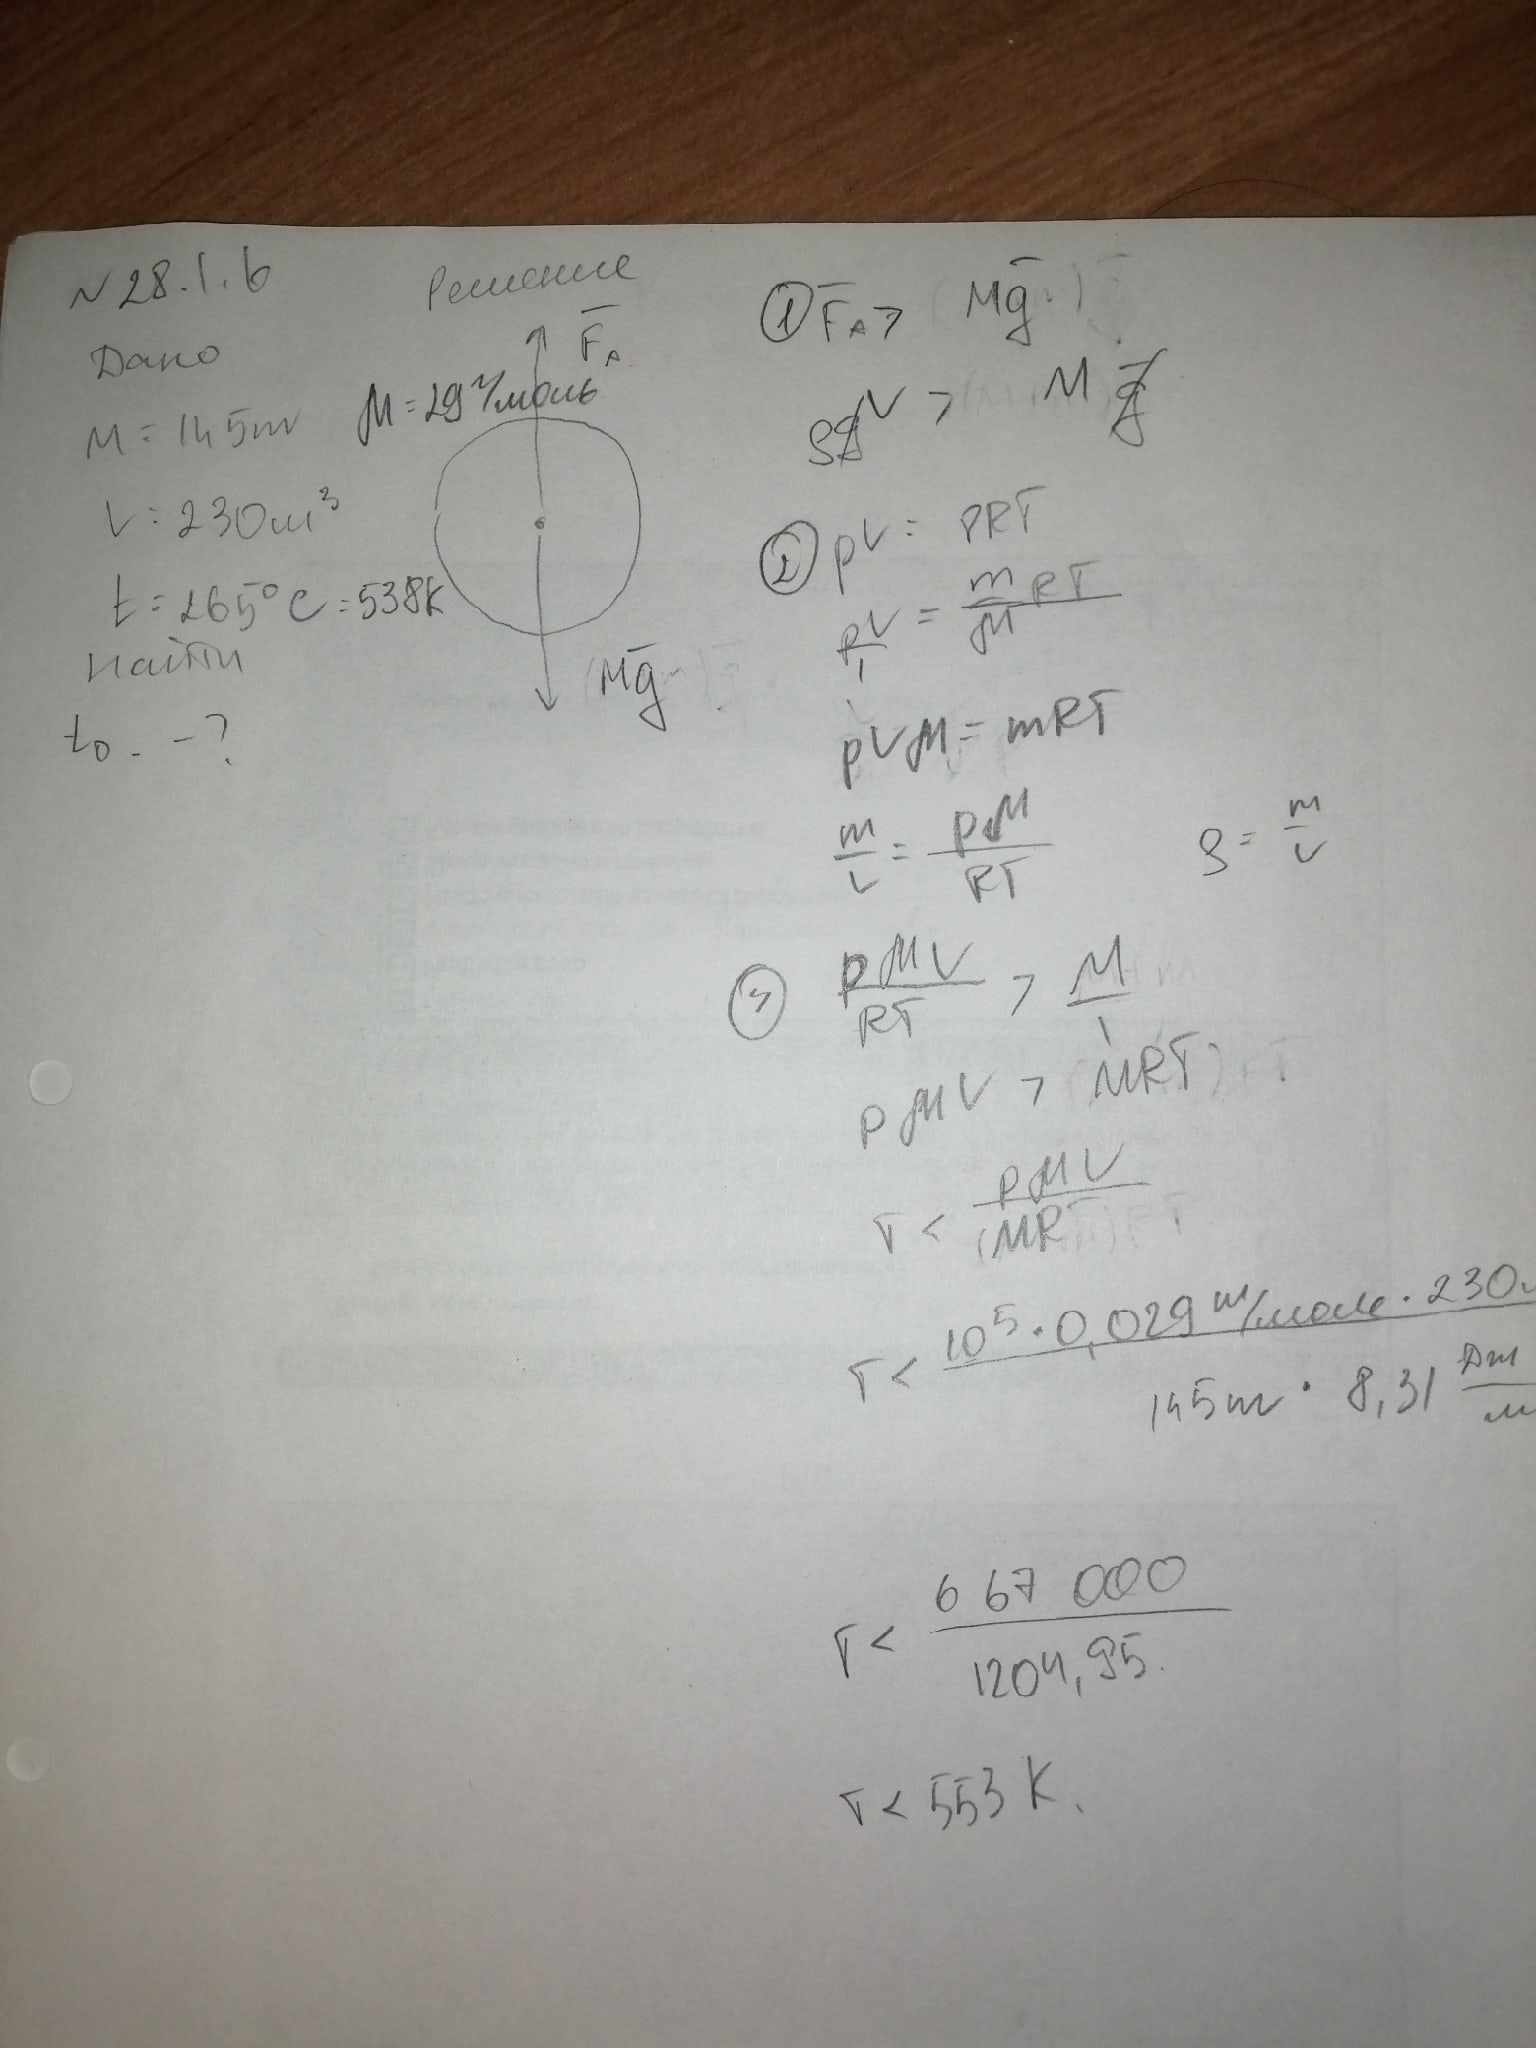 N 28.1.6
Решение
Дано
M = 145т
μ = 29 г/моль
V = 230м³
t = 265°C = 538K
Найти
t₀ - ?
F̄ₐ
Mḡ
① F̄ₐ > Mḡ
ρgV > Mg
② pV = νRT
pV/1 = m/μ RT
pVμ = mRT
m/V = pμ/RT
ρ = m/V
③ pμV/RT > M/1
pμV > MRT
T < pμV/(MRT
T < 10⁵ · 0,029 т/моль · 230м
145т · 8,31 Дж/м
T < 667 000/1204,95.
T < 553 K.